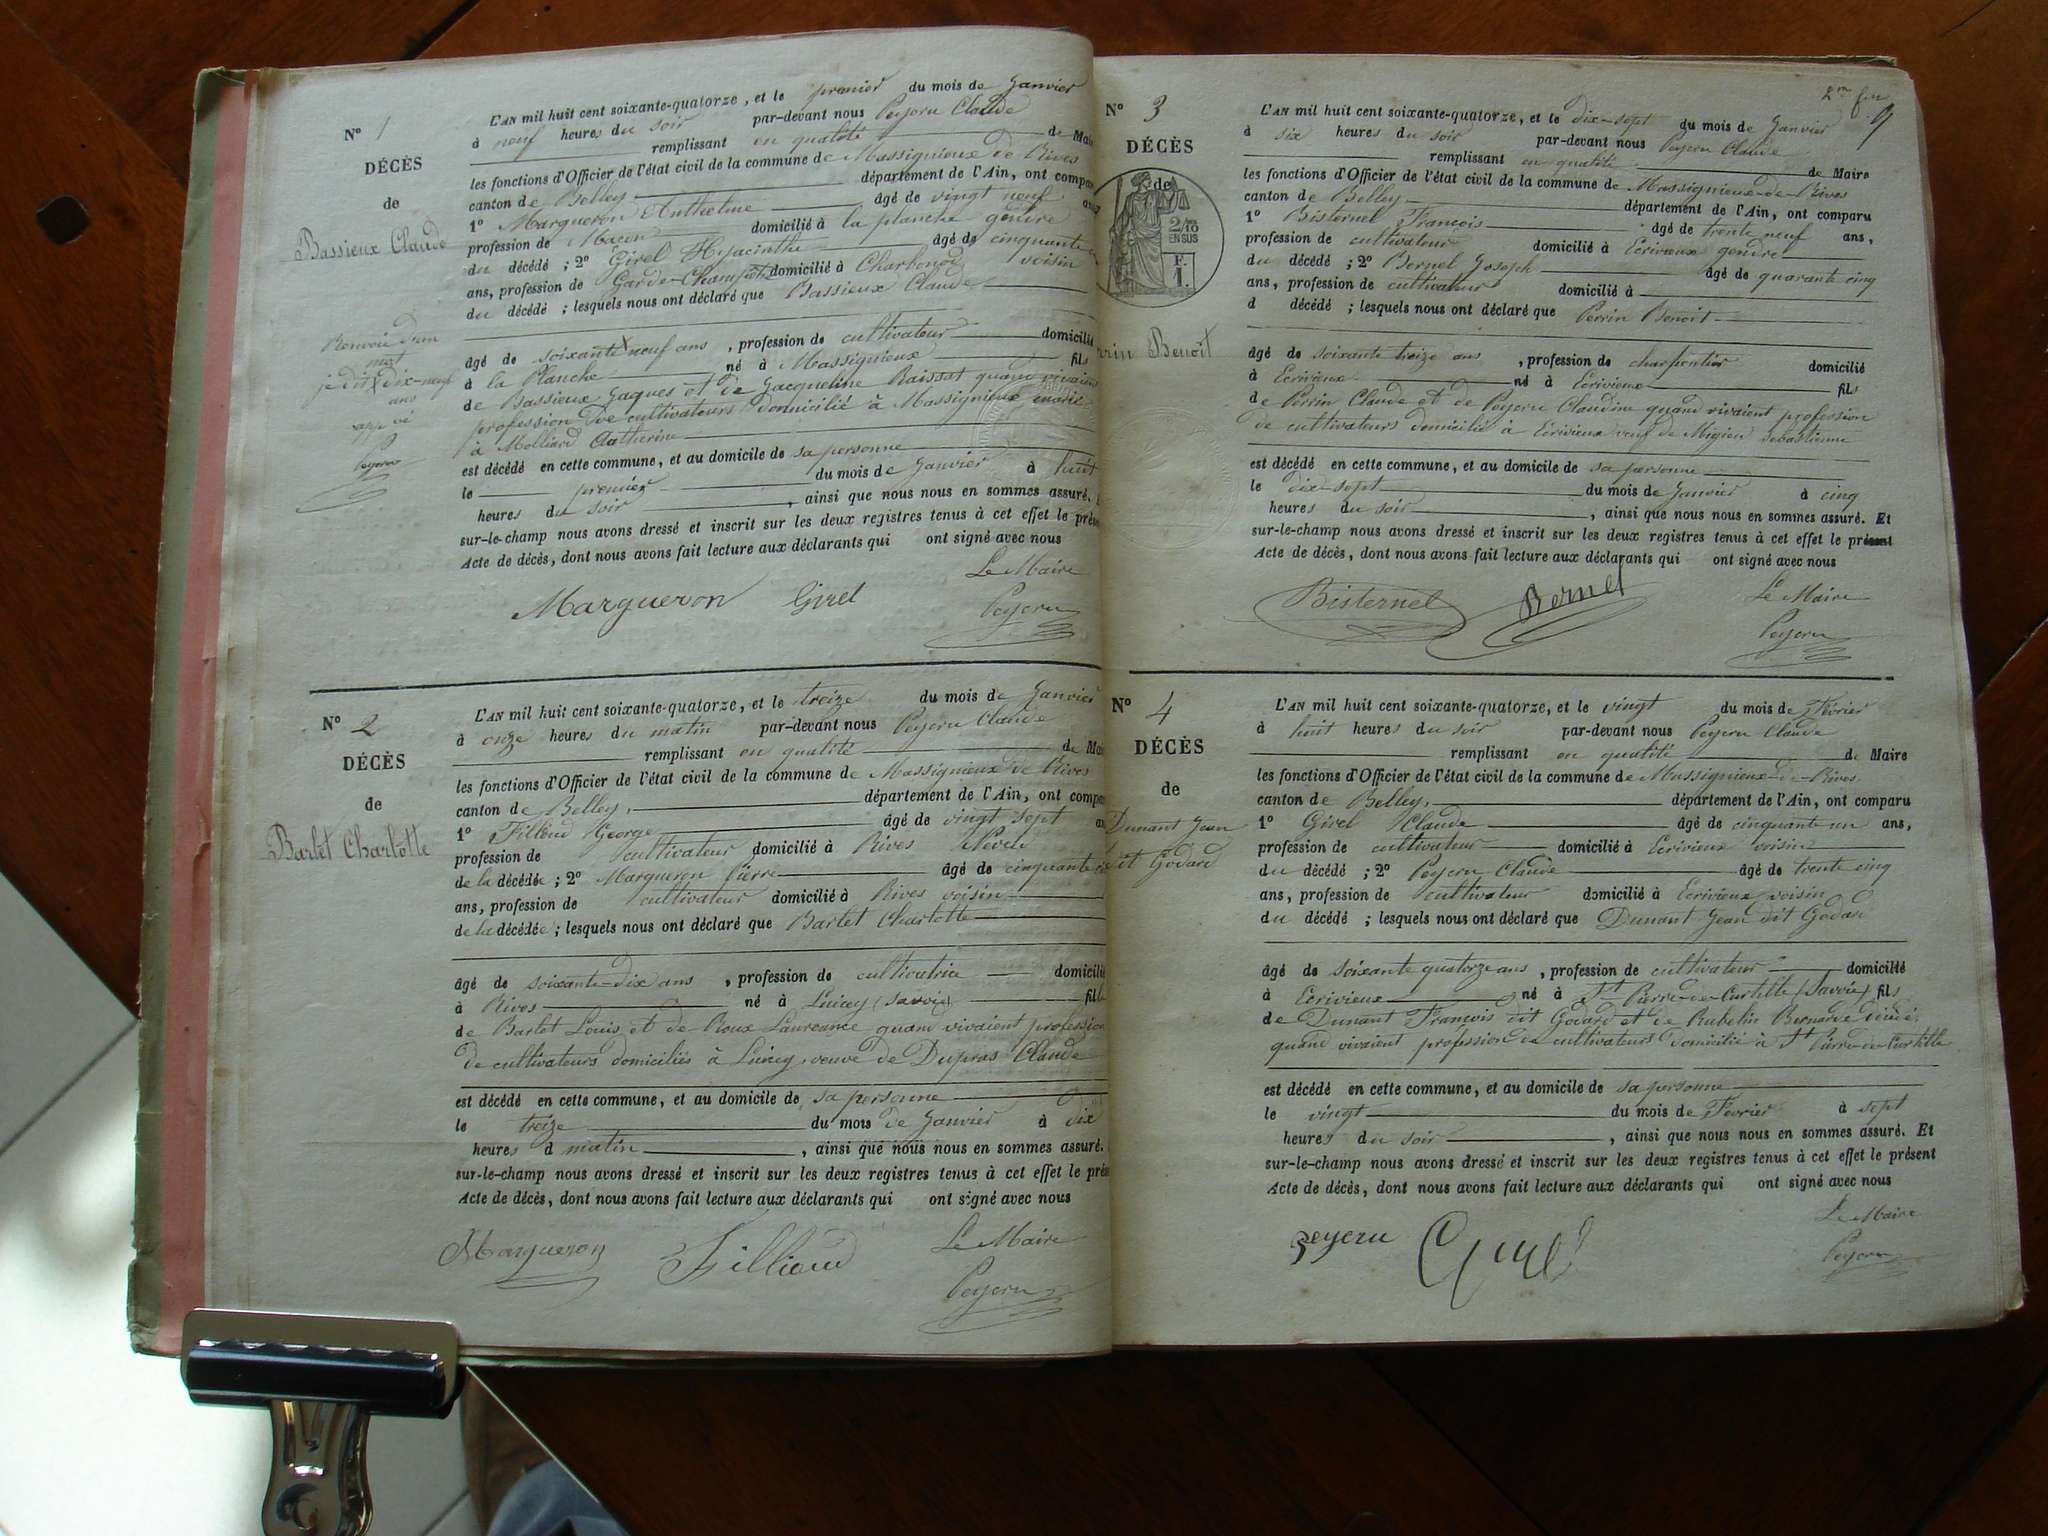 N° 1
DÉCÈS
de
Bassieux Claude
L'AN mil huit cent soixante-quatorze, et le premier du mois de Janvier
à neuf heures du soir par-devant nous Peyeru Claude
remplissant en qualité de Mai
les fonctions d'Officier de l'état civil de la commune de Massignieux de Rives
canton de Belley département de l'Ain, ont compar
1° Margueron Anthelme âgé de vingt neuf ans
profession de Maçon domicilié à la planche gendre
du décédé ; 2° Girel Hyacinthe âgé de cinquante
ans, profession de Garde-Champêt domicilié à Charbonod voisin
du décédé ; lesquels nous ont déclaré que Bassieux Claude
Renvoi d'un
mot
je dis X dix-neuf
ans
app vé
Peyeru
âgé de soixante X neuf ans , profession de cultivateur domicilié
à la Planche né à Massignieux fils
de Bassieux Jaques et de Jacqueline Raissat quand vivaient
profession de cultivateurs domicilié à Massignieux marié
à Molliard Catherine
est décédé en cette commune, et au domicile de sa personne
le premier du mois de Janvier à huit
heures du soir , ainsi que nous nous en sommes assuré.
sur-le-champ nous avons dressé et inscrit sur les deux registres tenus à cet effet le prése
Acte de décès, dont nous avons fait lecture aux déclarants qui ont signé avec nous
Le Maire
Margueron Girel Peyeru
N° 2
DÉCÈS
de
Barlet Charlotte
L'AN mil huit cent soixante-quatorze, et le treize du mois de Janvier
à onze heures du matin par-devant nous Peyeru Claude
remplissant en qualité de Mai
les fonctions d'Officier de l'état civil de la commune de Massignieux de Rives
canton de Belley, département de l'Ain, ont compar
1° Fillioud George âgé de vingt sept an
profession de cultivateur domicilié à Rives Neveu
de la décédée ; 2° Margueron Pierre âgé de cinquante
ans, profession de cultivateur domicilié à Rives voisin
de la décédée ; lesquels nous ont déclaré que Barlet Charlotte
âgé de soixante-dix ans , profession de cultivatrice domicilié
à Rives né à Lucey (Savoie) fille
de Barlet Louis et de Roux Laureance quand vivaient profession
de cultivateurs domiciliés à Lucey, veuve de Dupras Claude
est décédé en cette commune, et au domicile de sa personne
le treize du mois de Janvier à dix
heures d matin , ainsi que nous nous en sommes assuré.
sur-le-champ nous avons dressé et inscrit sur les deux registres tenus à cet effet le prés
Acte de décès, dont nous avons fait lecture aux déclarants qui ont signé avec nous
Margueron Fillioud Le Maire
Peyeru
2me
N° 3
DÉCÈS
de
2/10
EN SUS
F.
1.
rrin Benoit
L'AN mil huit cent soixante-quatorze, et le dix-sept du mois de Janvier
à six heures du soir par-devant nous Peyeru Claude
remplissant en qualité de Maire
les fonctions d'Officier de l'état civil de la commune de Massignieux-de-Rives
canton de Belley département de l'Ain, ont comparu
1° Bisternel Francois âgé de trente neuf ans,
profession de cultivateur domicilié à Ecrivieux gendre
du décédé ; 2° Bernel Joseph âgé de quarante cinq
ans, profession de cultivateur domicilié à
d décédé ; lesquels nous ont déclaré que Perrin Benoit
âgé de soixante treize ans , profession de charpentier domicilié
à Ecrivieux né à Ecrivieux fils
de Perrin Claude et de Peyeru Claudine quand vivaient profession
de cultivateurs domicilié à Ecrivieux veuf de Migieu Sébastienne
est décédé en cette commune, et au domicile de sa personne
le dix-sept du mois de Janvier à cinq
heures du soir , ainsi que nous nous en sommes assuré. Et
sur-le-champ nous avons dressé et inscrit sur les deux registres tenus à cet effet le présent
Acte de décès, dont nous avons fait lecture aux déclarants qui ont signé avec nous
Bisternel Bernel Le Maire
Peyeru
N° 4
DÉCÈS
de
Dunant Jean
dit Godard
L'AN mil huit cent soixante-quatorze, et le vingt du mois de Février
à huit heures du soir par-devant nous Peyeru Claude
remplissant en qualité de Maire
les fonctions d'Officier de l'état civil de la commune de Massignieux-de-Rives
canton de Belley, département de l'Ain, ont comparu
1° Girel Claude âgé de cinquante un ans,
profession de cultivateur domicilié à Ecrivieux voisin
du décédé ; 2° Peyeru Claude âgé de trente cinq
ans, profession de cultivateur domicilié à Ecrivieux voisin
du décédé ; lesquels nous ont déclaré que Dunant Jean dit Godard
âgé de soixante quatorze ans , profession de cultivateur domicilié
à Ecrivieux né à St Pierre-de-Curtille (Savoie) fils
de Dunant François dit Godard et de Rubelin Bernarde décédé
quand vivaient profession de cultivateurs domicilié à St Pierre-de-Curtille
est décédé en cette commune, et au domicile de sa personne
le vingt du mois de Février à sept
heures du soir , ainsi que nous nous en sommes assuré. Et
sur-le-champ nous avons dressé et inscrit sur les deux registres tenus à cet effet le présent
Acte de décès, dont nous avons fait lecture aux déclarants qui ont signé avec nous
Peyeru Girel Le Maire
Peyeru